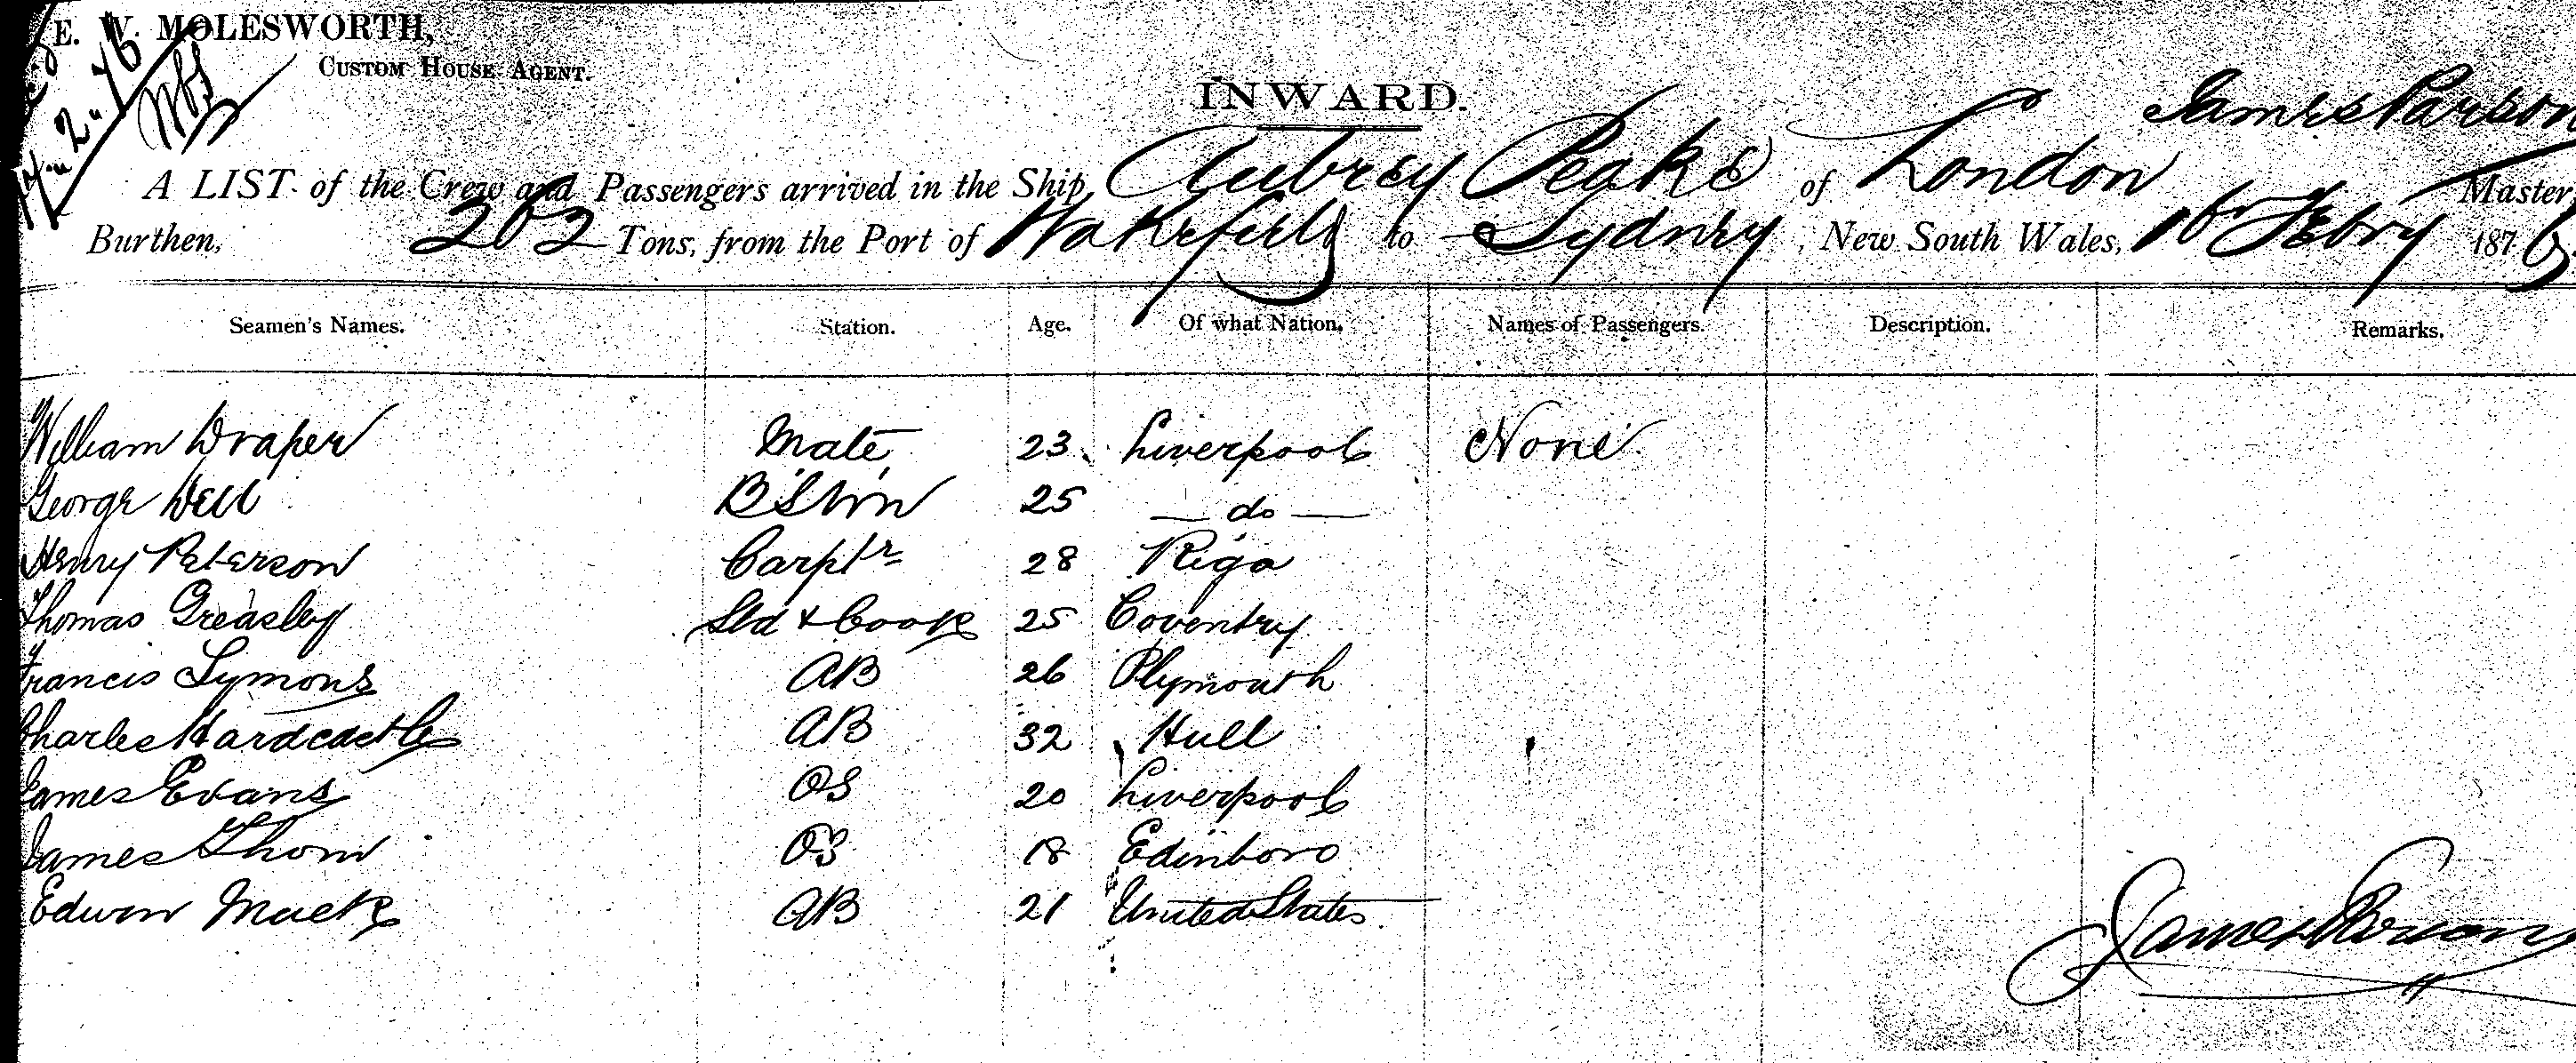 E. W. MOLESWORTH,
CUSTOM HOUSE AGENT.
INWARD.
James Parson
A LIST of the Crew and Passengers arrived in the Ship, Aubrey Peake of London Master,
Burthen, 262 Tons, from the Port of Wakefield to Sydney, New South Wales, 16 Febry 1876
Seamen's Names. Station. Age. Of what Nation. Names of Passengers. Description. Remarks.
William Draper Mate 23 Liverpool None
George Dell B'Swn 25 — do —
Henry Peterson Carptr 28 Riga
Thomas Greasley Std & Cook 25 Coventry
Francis Symons AB 26 Plymouth
Charles Hardcastle AB 32 Hull
James Evans OS 20 Liverpool
James Thom OS 18 Edinboro
Edwin Mack AB 21 United States
James Parsons